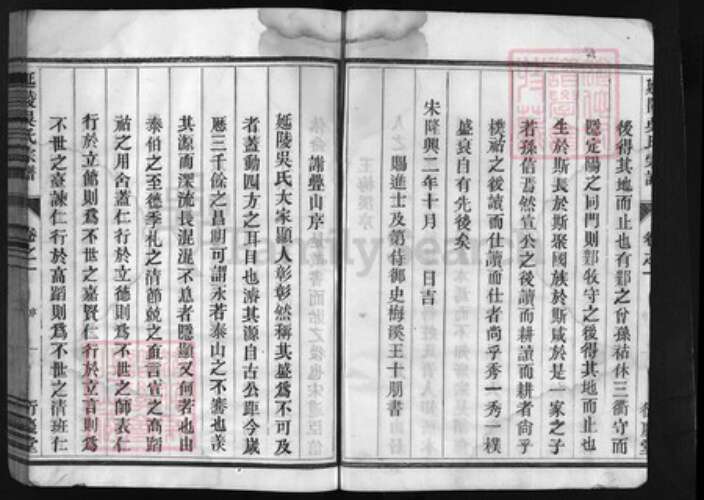 延陵吳氏宗譜 卷之一
後得其地而止也有郢之㑹孫祜休三衢守而
隱定陽之同門則郢牧守之後得其地而止也
生於斯長於斯聚國族於斯咸於是一家之子
若孫侶焉然宣公之後讀而耕讀而耕者尚乎
樸祜之後讀而仕讀而仕者尚乎秀一秀一樸
盛衰自有先後矣
宋隆興二年十月 日吉
賜進士及第侍御史梅溪王十朋書
謝疊山序
延陵吳氏大家顯人彰彰然稱其盛為不可及
者蓋動四方之耳目也濬其源自古公距今歲
歷三千餘之昌期可謂永若泰山之不騫也羨
其源而深流長混混不息者隱顯又何若也由
泰伯之至德季札之清節兢之直言宣之高蹈
祜之用舍蓋仁行於立德則為不世之師表仁
行於立節則為不世之嘉賢仁行於立言則為
不世之臺諫仁行於高蹈則為不世之清班仁
延陵吳氏宗譜 卷之一 序 衍慶堂